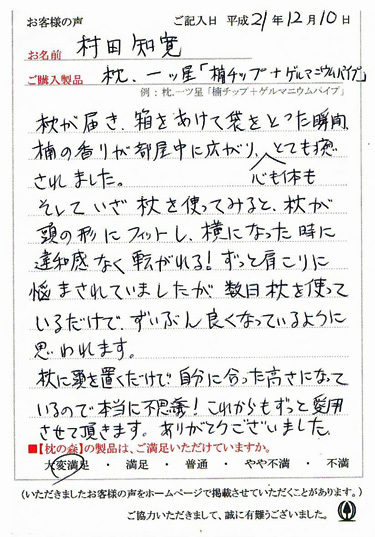 お客様の声　　ご記入日 平成21年12月10日
お名前　村田 知寛
ご購入製品　枕.一ツ星「楠チップ+ゲルマニウムパイプ」
例：枕.一ツ星「楠チップ＋ゲルマニウムパイプ」
枕が届き、箱をあけて袋をとった瞬間、
楠の香りが部屋中に広がり、とても癒
されました。　心も体も
そして いざ 枕を使ってみると、枕が
頭の形にフィットし、横になった時に
違和感なく転がれる！ずっと肩こりに
悩まされていましたが、数日枕を使って
いるだけで、ずいぶん良くなっているように
思われます。
枕に頭を置くだけで、自分に合った高さになって
いるので本当に不思議！これからもずっと愛用
させて頂きます。ありがとうございました。
■【枕の森】の製品は、ご満足いただけていますか。
大変満足　・　満足　・　普通　・　やや不満　・　不満
（いただきましたお客様の声をホームページで掲載させていただくことがあります。）
ご協力いただきまして、誠に有難うございました。